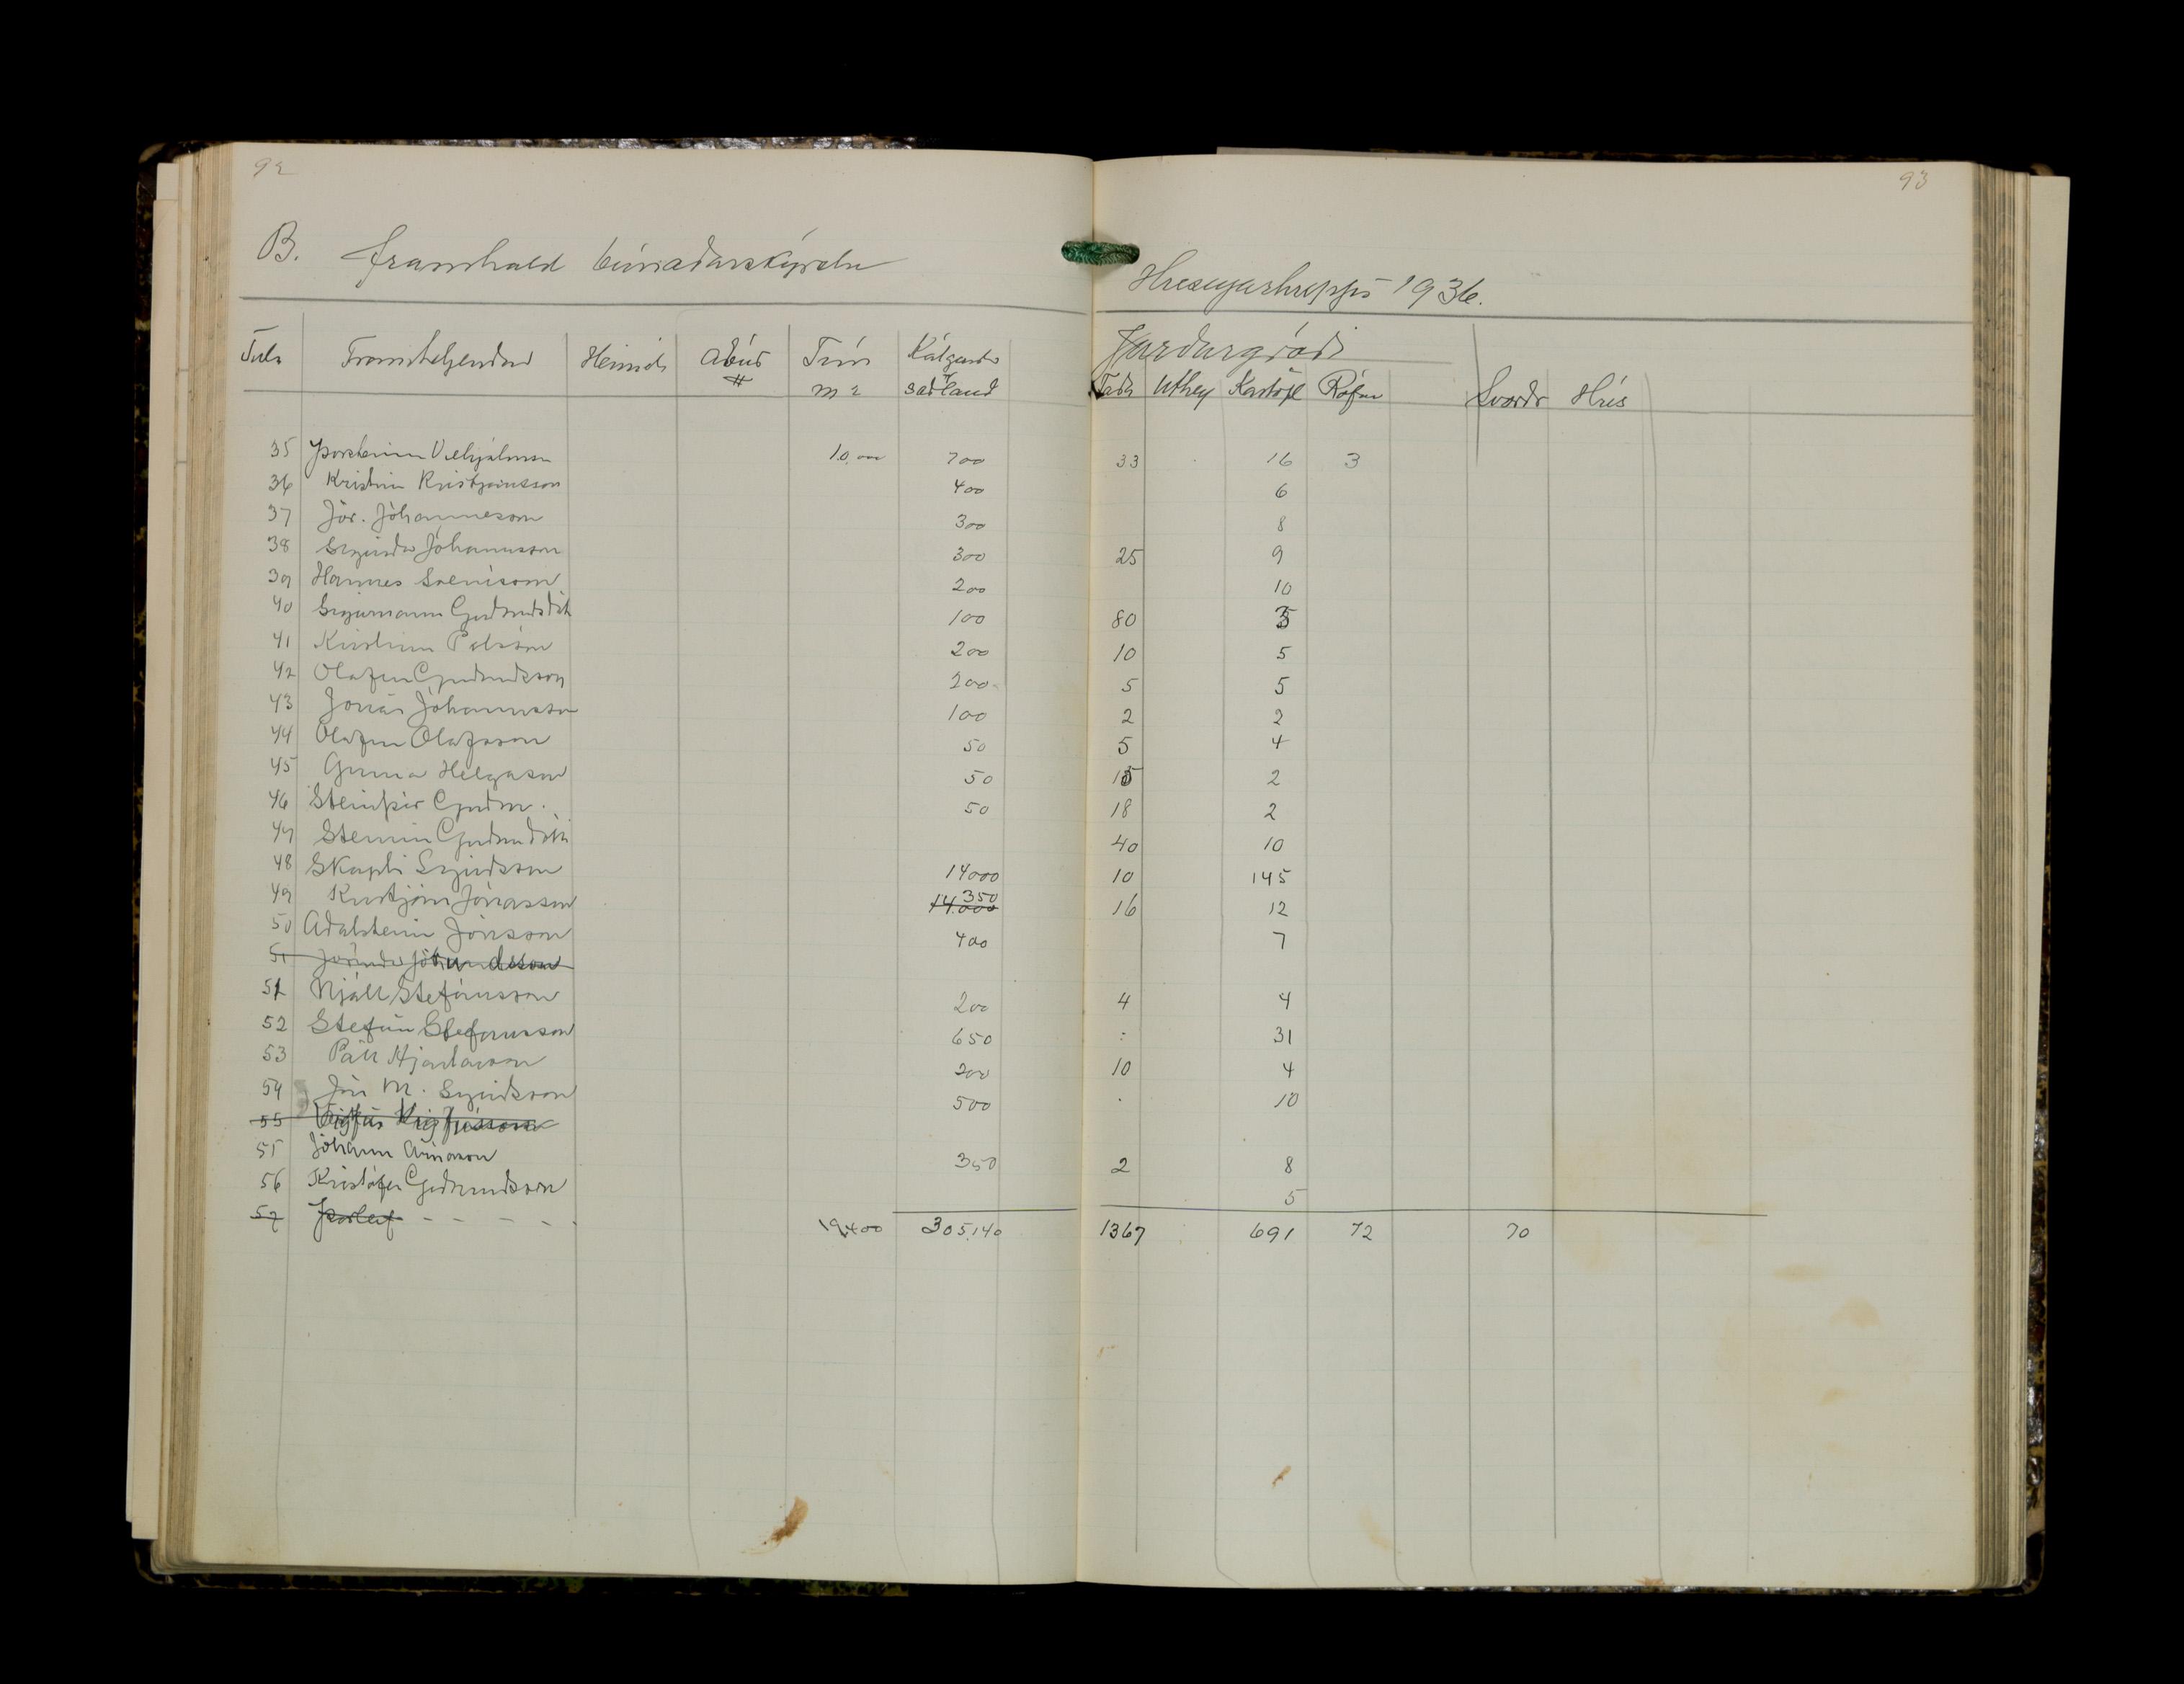 92
93
B. framhald búnaðarskýrslu
Hríseyjarhrepps 1936.
Tala Framteljendur Heimili Ábúð # Tún m2 Kálgarðar sáðland Jarðargróði Taða Úthey Kartöfl Rófur Svörður Hrís
35 Þorsteinn Vilhjálmsson 10.000 700 33 16 3
36 Kristinn Kristjánsson 400 6
37 Jör. Jóhannesson 300 8
38 Sigurður Jóhannsson 300 25 9
39 Hannes 200 10
40 Sigurmanna Guðmdsdótt 100 80 3
41 Kristinn Pálsson 200 10 5
42 Olafur Guðmundsson 200 5 5
43 Jónas Jóhannsson 100 2 2
44 Olafur Olafsson 50 5 4
45 Gunnar Helgason 50 15 2
46 Steinþór Guðm. 50 18 2
47 Steinun Guðmdótti 40 10
48 Skapti Sigurðsson 14000 10 145
49 Kristján Jónasson 14.000 350 16 12
50 Aðalsteinn Jónsson 400 7
51 Jörundur Jörundsson
51 Njáll Stefánsson 200 4 4
52 Stefán Stefánsson 650 : 31
53 Páll Hjartarson 200 10 4
54 Jón M. Sigurðsson 500 . 10
55 Vigfús Vigfússon
55 Jóhann Árnason 350 2 8
56 Kristófer Guðmundsson 5
57 Þorleif - - - -
19.400 305,140 1367 691 72 70